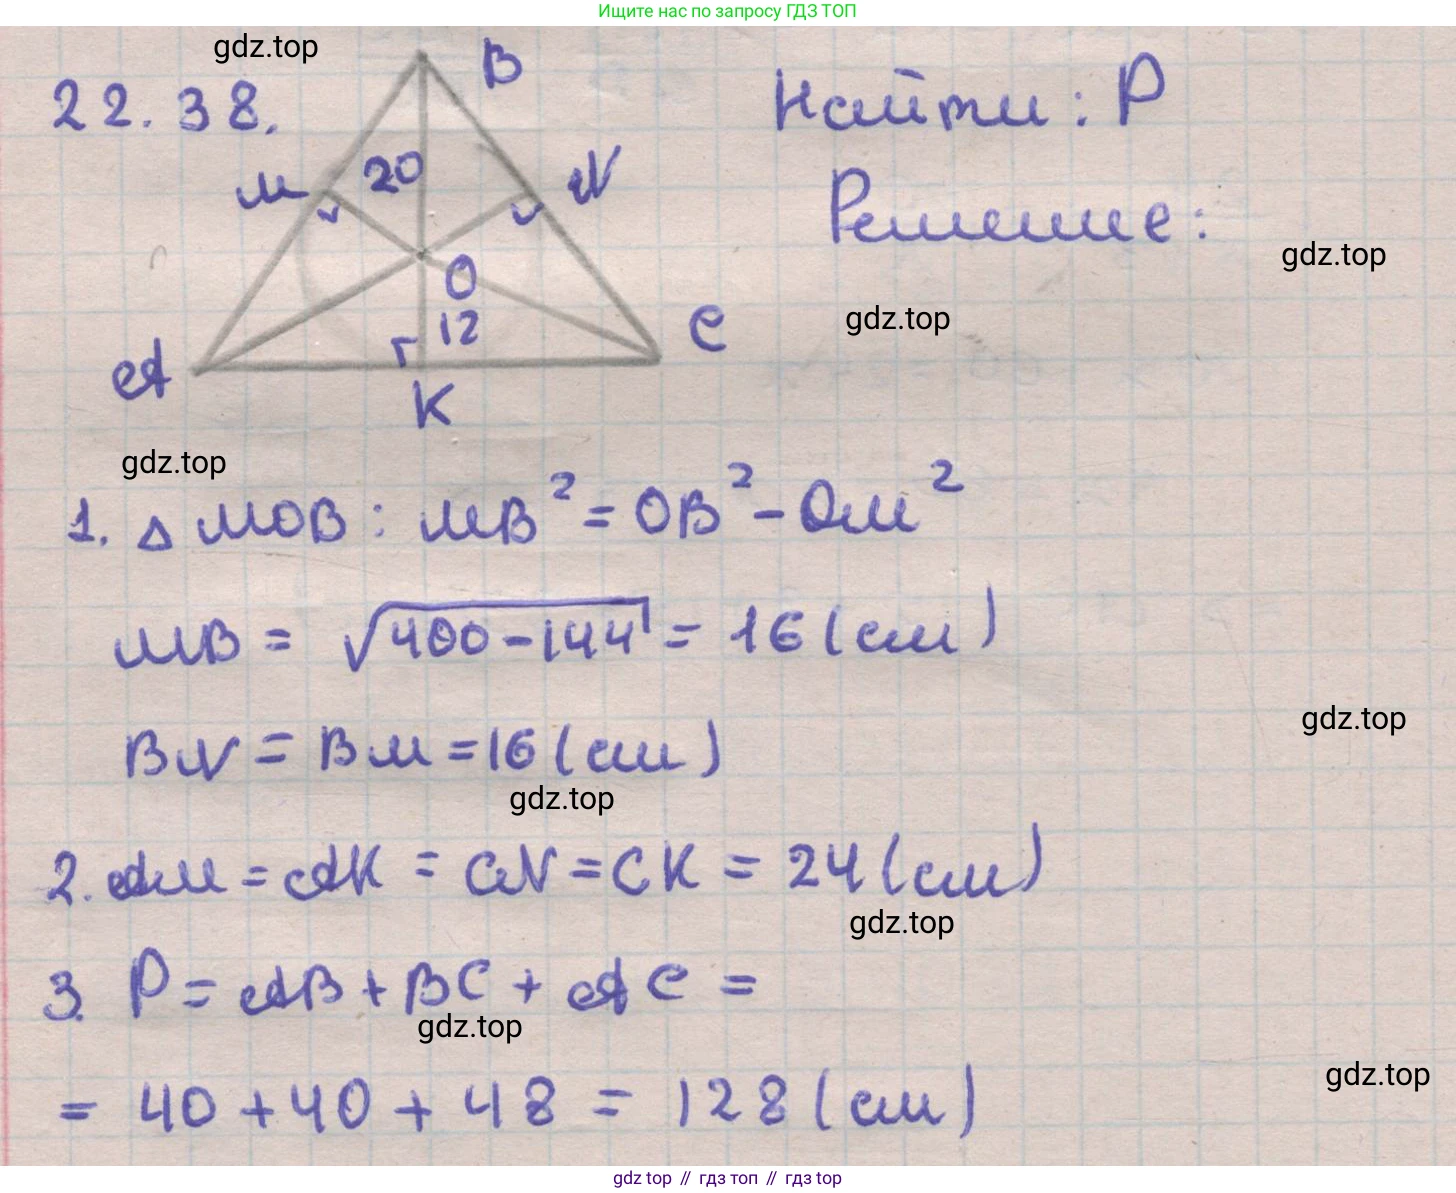 Ищите нас по запросу ГДЗ ТОП
gdz.top
22.38.
B
Найти: P
M
20
N
Решение:
gdz.top
O
gdz.top
12
C
A
K
gdz.top
1. △ MOB: MB² = OB² - OM²
MB = √400-144 = 16 (см)
gdz.top
BN = BM = 16 (см)
gdz.top
2. AM = AK = CN = CK = 24 (см)
gdz.top
3. P = AB + BC + AC =
gdz.top
gdz.top
= 40 + 40 + 48 = 128 (см)
gdz top // гдз топ // гдз.top